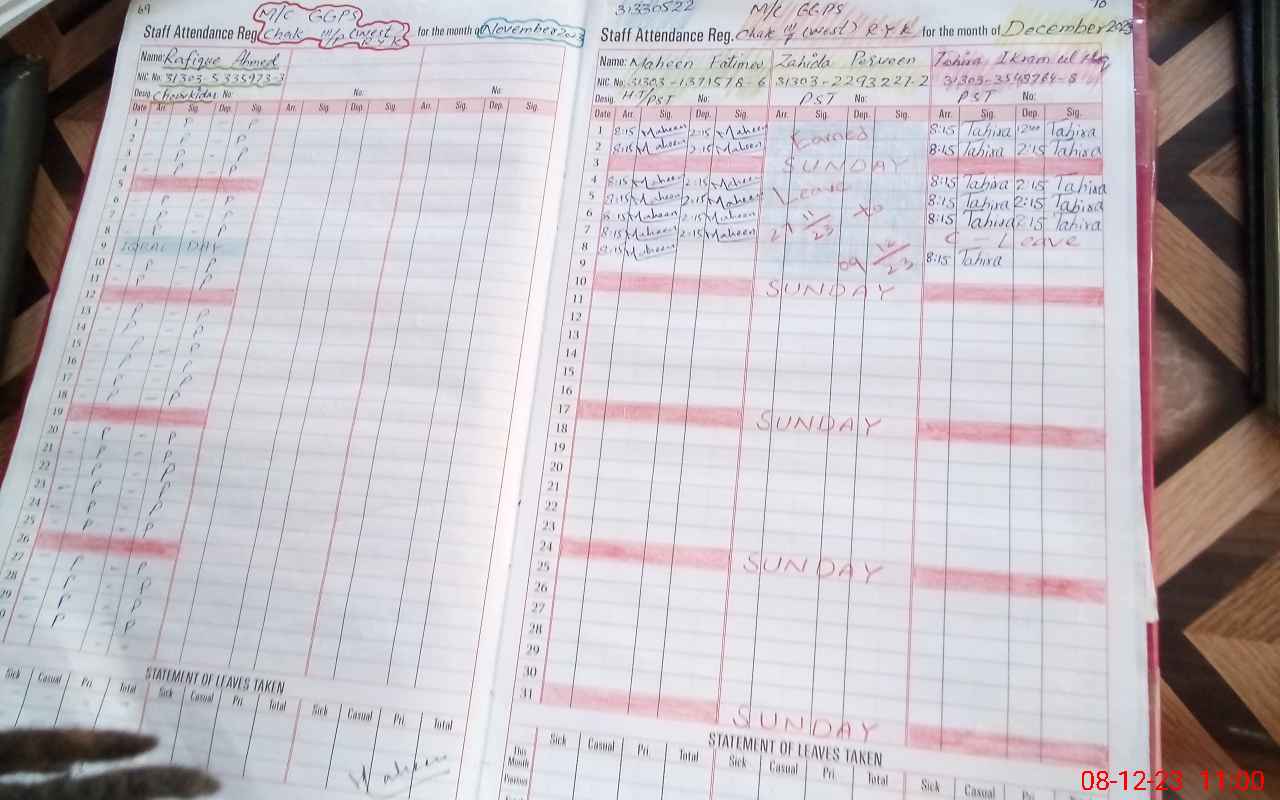 69
M/C GGPS
Staff Attendance Reg. Chak 111/P (west) R Y K for the month of November 2023
Name: Rafique Ahmed
NIC No. 31303-5335973-3
Desig. Chowkidar No: No: No:
Date Arr. Sig. Dep. Sig. Arr. Sig. Dep. Sig. Arr. Sig. Dep. Sig.
1 - P - P
2 - P - P
3 - P - P
4 - P - P
5
6 - P - P
7 - P - P
8 - P - P
9 IQBAL DAY
10 - P - P
11 - P - P
12
13 - P - P
14 - P - P
15 - P - P
16 - P - P
17 - P - P
18 - P - P
19
20 - P - P
21 - P - P
22 - P - P
23 - P - P
24 - P - P
25 - P - P
26
27 - P - P
28 - P - P
29 - P - P
- P - P
STATEMENT OF LEAVES TAKEN
Sick Casual Pri. Total Sick Casual Pri. Total Sick Casual Pri. Total
Maheen
31330522 M/C GGPS 70
Staff Attendance Reg. Chak 111/P (west) R Y K for the month of December 2023
Name: Maheen Fatima Zahida Perveen Tahira Ikram ul Haq
NIC No. 31303-1371578-6 31303-2293227-2 31303-3548784-8
Desig. HT/PST No: PST No: PST No:
Date Arr. Sig. Dep. Sig. Arr. Sig. Dep. Sig. Arr. Sig. Dep. Sig.
1 8:15 Maheen 2:15 Maheen Earned 8:15 Tahira 12:00 Tahira
2 8:15 Maheen 2:15 Maheen 8:15 Tahira 2:15 Tahira
3 SUNDAY
4 8:15 Maheen 2:15 Maheen Leave 8:15 Tahira 2:15 Tahira
5 8:15 Maheen 2:15 Maheen 8:15 Tahira 2:15 Tahira
6 8:15 Maheen 2:15 Maheen 21/11/23 to 8:15 Tahira 2:15 Tahira
7 8:15 Maheen 2:15 Maheen C - Leave
8 8:15 Maheen 09/12/23 8:15 Tahira
9
10 SUNDAY
11
12
13
14
15
16
17 SUNDAY
18
19
20
21
22
23
24 SUNDAY
25
26
27
28
29
30
31 SUNDAY
STATEMENT OF LEAVES TAKEN
Sick Casual Pri. Total Sick Casual Pri. Total Sick Casual Pri. Total
This Month
08-12-23 11:00